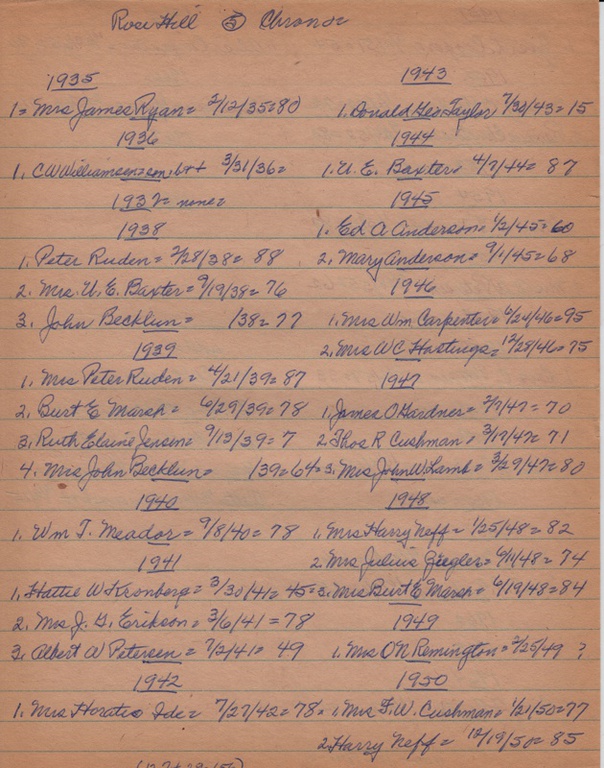 Rose Hill ⑤ Chronor
1935
1 = Mrs James Ryan = 2/12/35 = 80
1936
1. CW Williamson = 3/31/36 =
1937 = none =
1938
1. Peter Ruden = 2/28/38 = 88
2. Mrs. U. E. Baxter = 9/19/38 = 76
3. John Becklun = /38 = 77
1939
1. Mrs Peter Ruden = 4/21/39 = 87
2. Burt E Marsh = 6/29/39 = 78
3. Ruth Elaine Jensen = 9/13/39 = 7
4. Mrs John Becklun = /39 = 64 =
1940
1. Wm T. Meador = 9/8/40 = 78
1941
1. Hattie W Kronberg = 3/30/41 = 45 =
2. Mrs J. G. Erikson = 3/6/41 = 78
3. Albert W Petersen = 7/2/41 = 49
1942
1. Mrs Horatio Ide = 7/27/42 = 78 =
1943
1. Donald Geo Taylor 7/30/43 = 15
1944
1. U. E. Baxter = 4/7/44 = 87
1945
1. Ed A Anderson = 1/2/45 = 60
2. Mary Anderson = 9/1/45 = 68
1946
1. Mrs Wm. Carpenter = 6/24/46 = 95
2. Mrs W C Hastings = 12/28/46 = 75
1947
1. James O Gardner = 2/7/47 = 70
2. Thos R Cushman = 3/17/47 = 71
3. Mrs John W Lamb = 3/29/47 = 80
1948
1. Mrs Harry Neff = 1/25/48 = 82
2. Mrs Julius Ziegler = 6/11/48 = 74
3. Mrs Burt E Marsh = 6/19/48 = 84
1949
1. Mrs O N Remington = 2/25/49 ?
1950
1. Mrs F. W. Cushman = 1/21/50 = 77
2. Harry Neff = 12/19/50 = 85